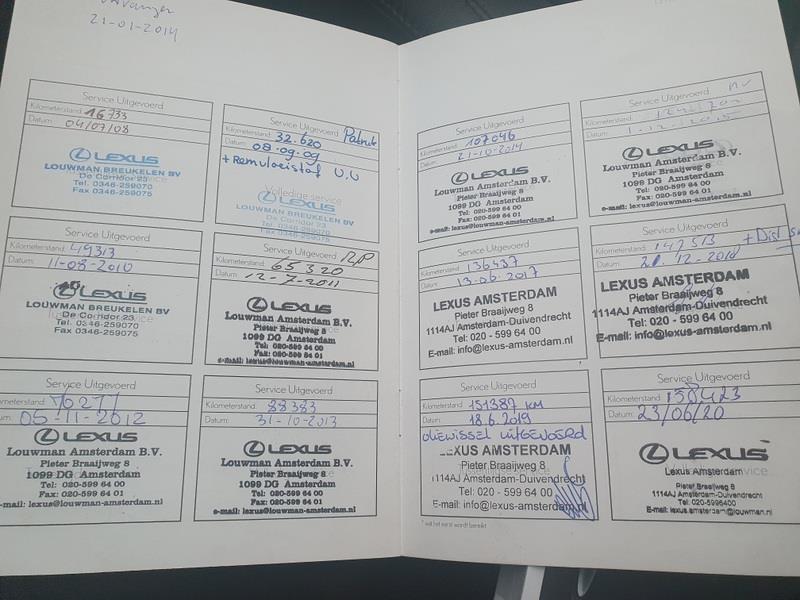 21-01-2014
Service Uitgevoerd
Kilometerstand: 16733
Datum: 04/07/08
LEXUS
LOUWMAN BREUKELEN BV
De Corridor 23
Tel. 0346-259070
Fax 0346-259075
Service Uitgevoerd
Kilometerstand: 32.620
Datum: 08-09-09
+ Remvloeistof
Volledige service
LEXUS
LOUWMAN BREUKELEN BV
De Corridor 23
Tel. 0346-259070
Fax 0346-259075
Service Uitgevoerd
Kilometerstand: 49313
Datum: 11-08-2010
LEXUS
LOUWMAN BREUKELEN BV
De Corridor 23
Tel. 0346-259070
Fax 0346-259075
Service Uitgevoerd
Kilometerstand: 65320
Datum: 12-7-2011
LEXUS
Louwman Amsterdam B.V.
Pieter Braaijweg 8
1099 DG Amsterdam
Tel: 020-599 64 00
Fax: 020-599 64 01
e-mail: lexus@louwman-amsterdam.nl
Service Uitgevoerd
Kilometerstand:
Datum: 05-11-2012
LEXUS
Louwman Amsterdam B.V.
Pieter Braaijweg 8
1099 DG Amsterdam
Tel: 020-599 64 00
Fax: 020-599 64 01
e-mail: lexus@louwman-amsterdam.nl
Service Uitgevoerd
Kilometerstand: 88383
Datum: 31-10-2013
LEXUS
Louwman Amsterdam B.V.
Pieter Braaijweg 8
1099 DG Amsterdam
Tel: 020-599 64 00
Fax: 020-599 64 01
e-mail: lexus@louwman-amsterdam.nl
Service Uitgevoerd
Kilometerstand: 107046
Datum: 21-10-2014
LEXUS
Louwman Amsterdam B.V.
Pieter Braaijweg 8
1099 DG Amsterdam
Tel: 020-599 64 00
Fax: 020-599 64 01
e-mail: lexus@louwman-amsterdam.nl
Service Uitgevoerd
Kilometerstand:
Datum:
LEXUS
Louwman Amsterdam B.V.
Pieter Braaijweg 8
1099 DG Amsterdam
Tel: 020-599 64 00
Fax: 020-599 64 01
e-mail: lexus@louwman-amsterdam.nl
Service Uitgevoerd
Kilometerstand: 136437
Datum: 13-06-2017
LEXUS AMSTERDAM
Pieter Braaijweg 8
1114AJ Amsterdam-Duivendrecht
Tel: 020 - 599 64 00
E-mail: info@lexus-amsterdam.nl
Service Uitgevoerd
Kilometerstand: 147513
Datum:
LEXUS AMSTERDAM
Pieter Braaijweg 8
1114AJ Amsterdam-Duivendrecht
Tel: 020 - 599 64 00
E-mail: info@lexus-amsterdam.nl
Service Uitgevoerd
Kilometerstand: 151387 KM
Datum: 18.6.2019
OLIEWISSEL UITGEVOERD
LEXUS AMSTERDAM
Pieter Braaijweg 8
1114AJ Amsterdam-Duivendrecht
Tel: 020 - 599 64 00
E-mail: info@lexus-amsterdam.nl
* wat het eerst wordt bereikt
Service Uitgevoerd
Kilometerstand: 158423
Datum: 23/06/20
LEXUS
Lexus Amsterdam
Pieter Braaijweg 8
1114AJ Amsterdam-Duivendrecht
Tel. 020-5996400
E-mail: lexus.amsterdam@louwman.nl